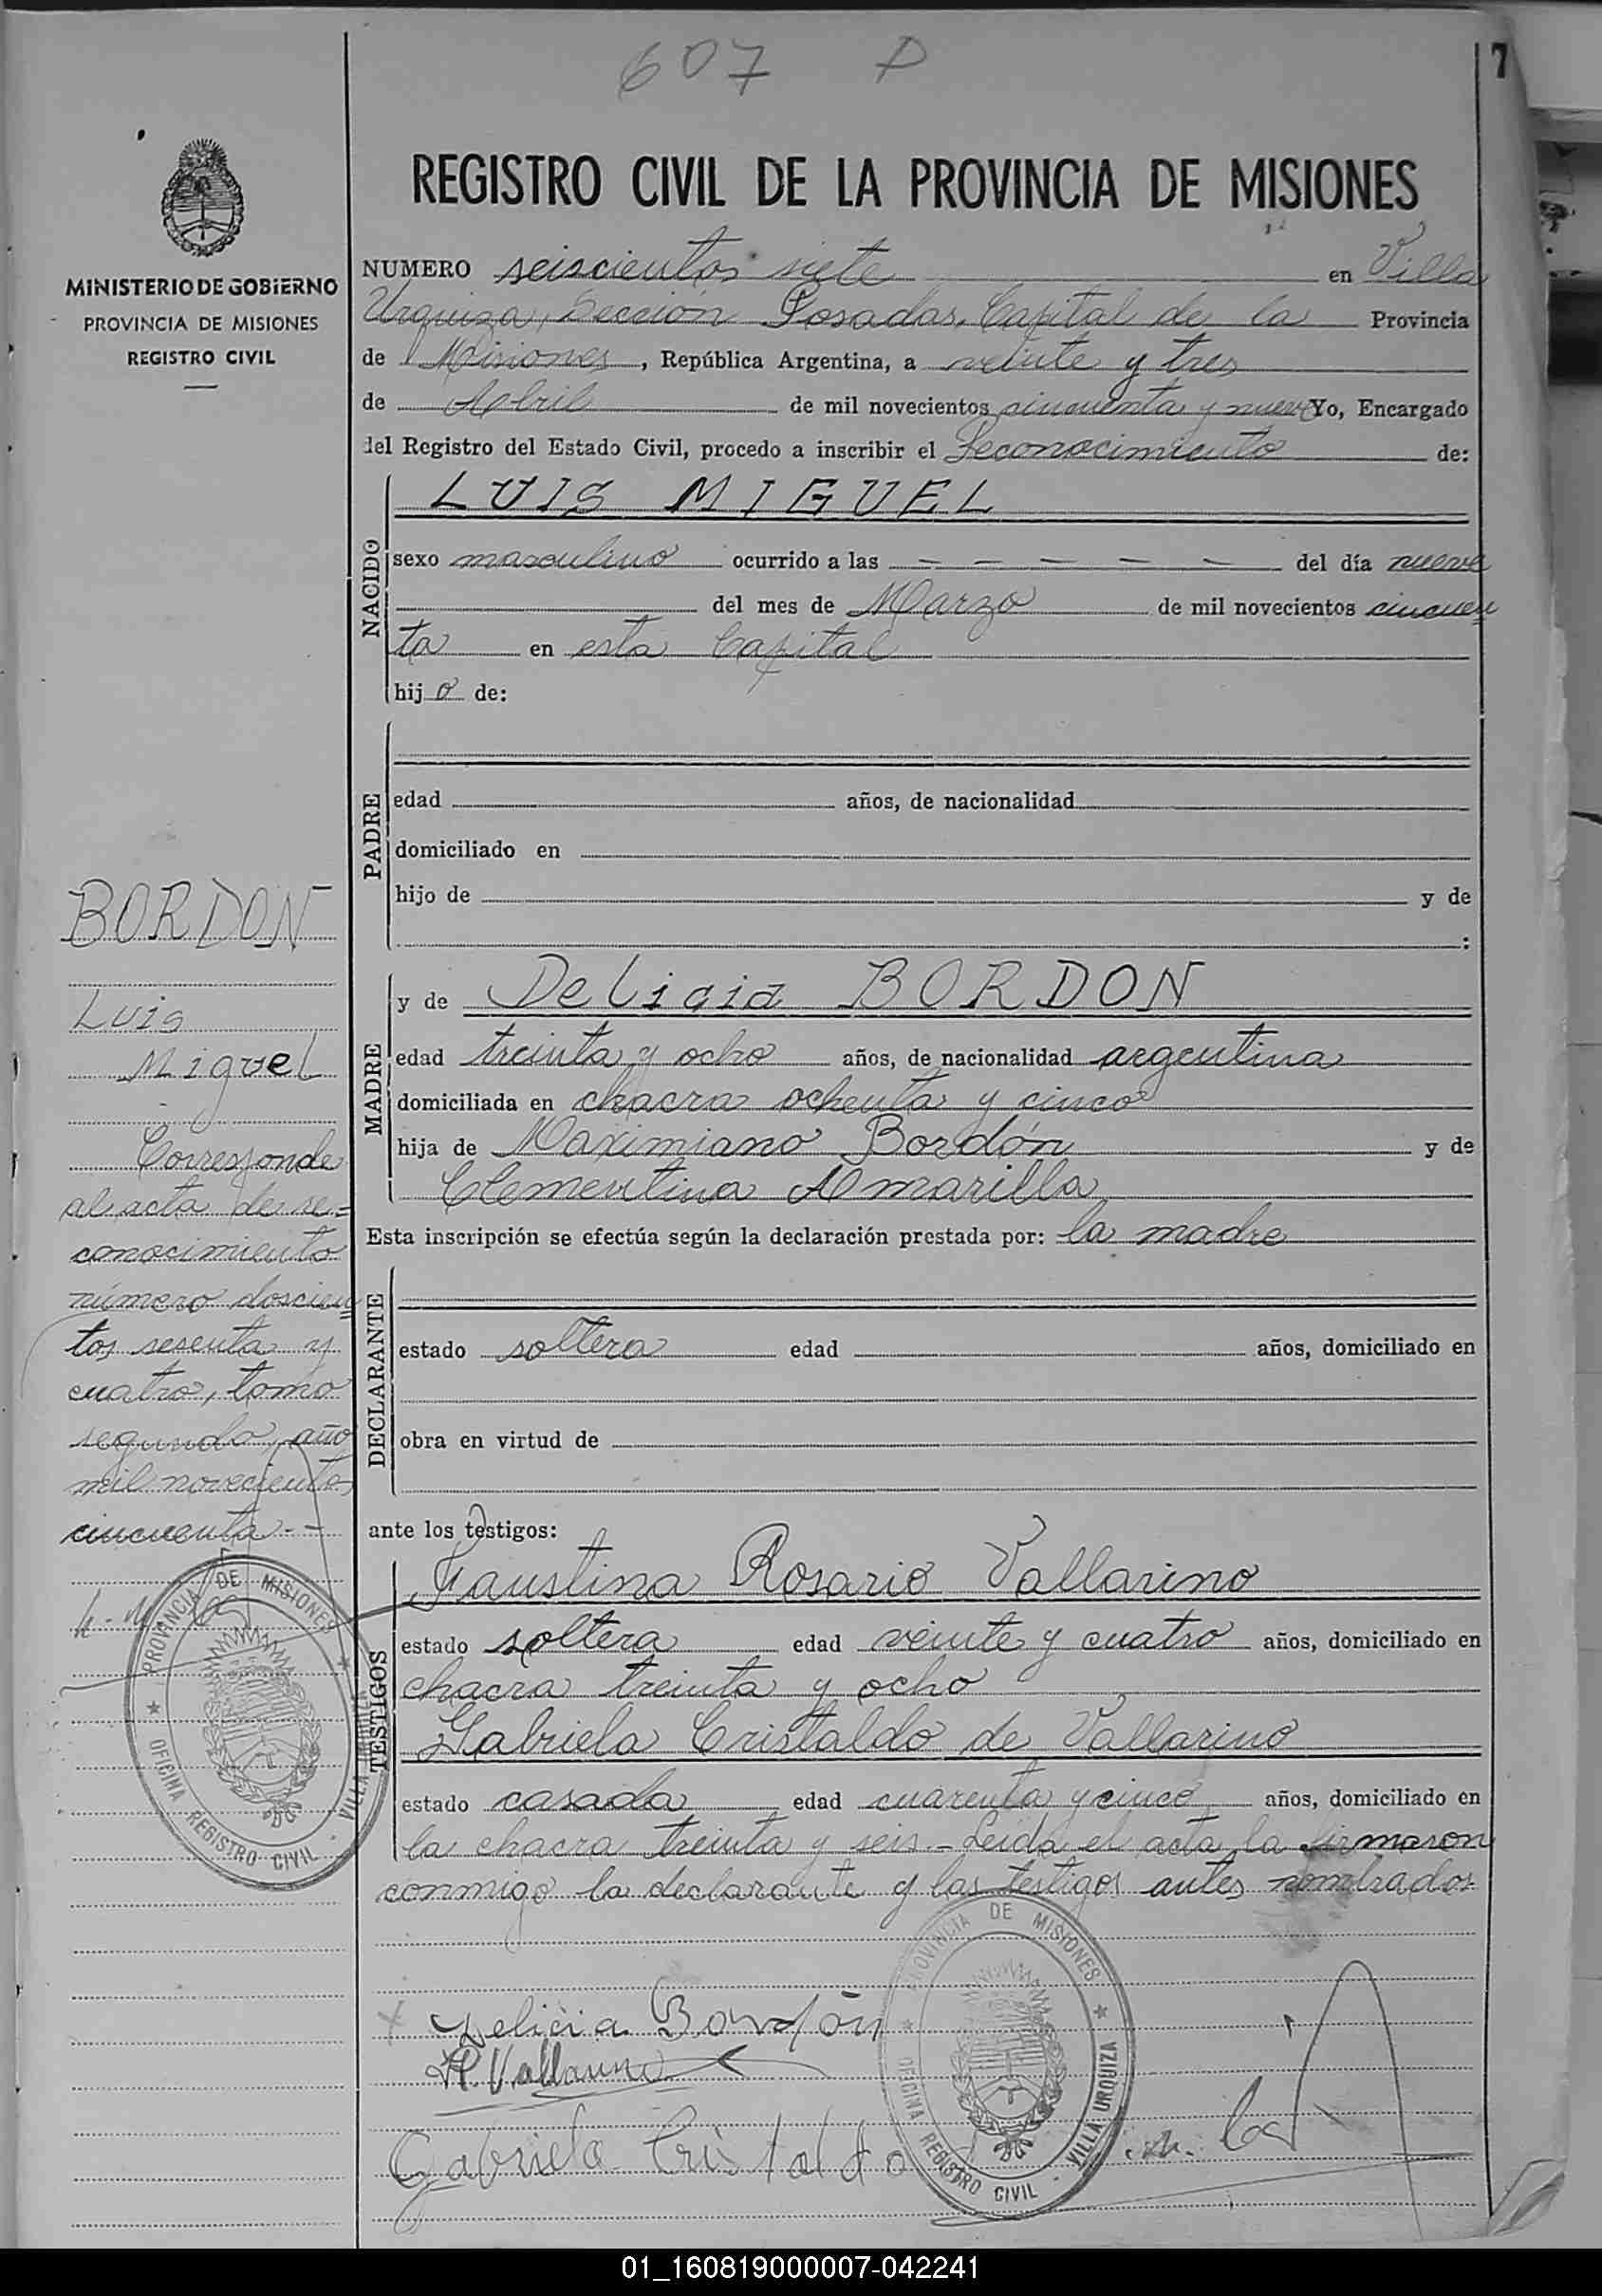 607 P
7
REGISTRO CIVIL DE LA PROVINCIA DE MISIONES
MINISTERIO DE GOBIERNO
PROVINCIA DE MISIONES
REGISTRO CIVIL
NUMERO seiscientos siete en Villa
Urquiza, Sección Posadas, Capital de la Provincia
de Misiones, República Argentina, a veinte y tres
de Abril de mil novecientos cincuenta y nueve Yo, Encargado
del Registro del Estado Civil, procedo a inscribir el Reconocimiento de:
NACIDO
LUIS MIGUEL
sexo masculino ocurrido a las – – – – – del día nueve
del mes de Marzo de mil novecientos cincuen
ta en esta Capital
hijo de:
PADRE
edad años, de nacionalidad
domiciliado en
hijo de y de
:
MADRE
y de Delicia BORDON
edad treinta y ocho años, de nacionalidad argentina
domiciliada en chacra ochenta y cinco
hija de Maximiano Bordón y de
Clementina Amarilla
Esta inscripción se efectúa según la declaración prestada por: la madre
DECLARANTE
estado soltera edad años, domiciliado en
obra en virtud de
ante los testigos:
TESTIGOS
Faustina Rosario Vallarino
estado soltera edad veinte y cuatro años, domiciliado en
chacra treinta y ocho
Gabriela Cristaldo de Vallarino
estado casada edad cuarenta y cinco años, domiciliado en
la chacra treinta y seis.- Leída el acta, la firmaron
conmigo la declarante y las testigos antes nombrados
BORDON
Luis
Miguel
Corresponde
al acta de re=
conocimiento
número doscien
tos sesenta y
cuatro, tomo
segundo, año
mil novecientos
cincuenta.-
PROVINCIA DE MISIONES
OFICINA REGISTRO CIVIL - VILLA URQUIZA
x Delicia Bordón
R. Vallarino
Gabriela Cristaldo
PROVINCIA DE MISIONES
OFICINA REGISTRO CIVIL - VILLA URQUIZA
01_160819000007-042241